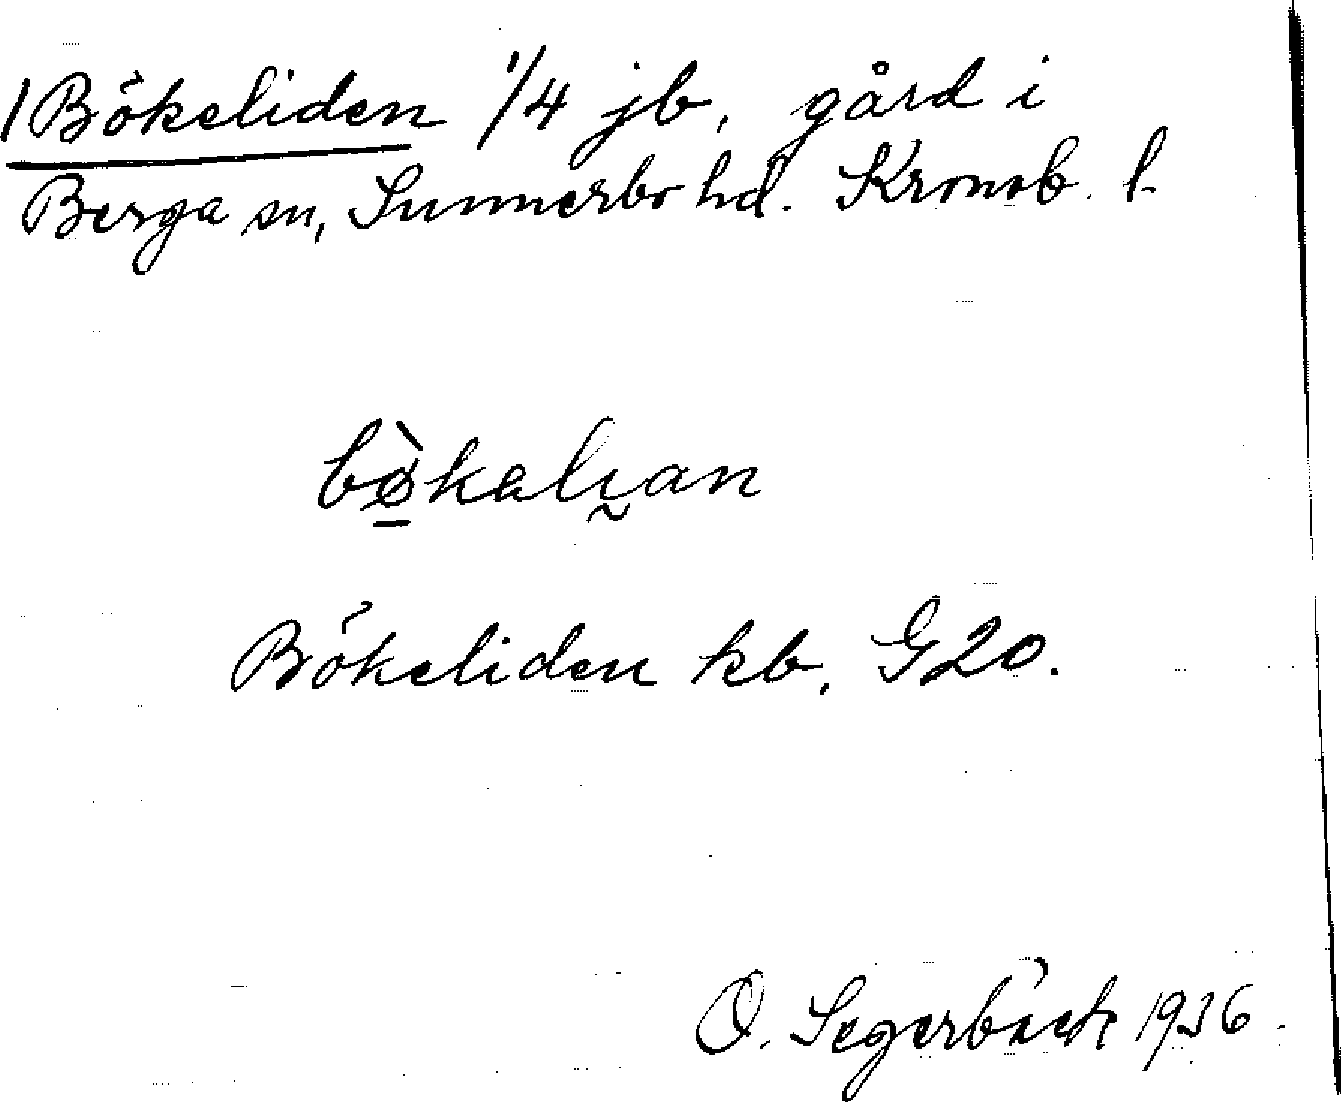 /Bökeliden 1/4 jb, gård i
Berga sn, Sunnerbo hd. Kronob. l.
bø̱̀kali̯an
Bökeliden kb. G20.
O. Segerbäck 1936.